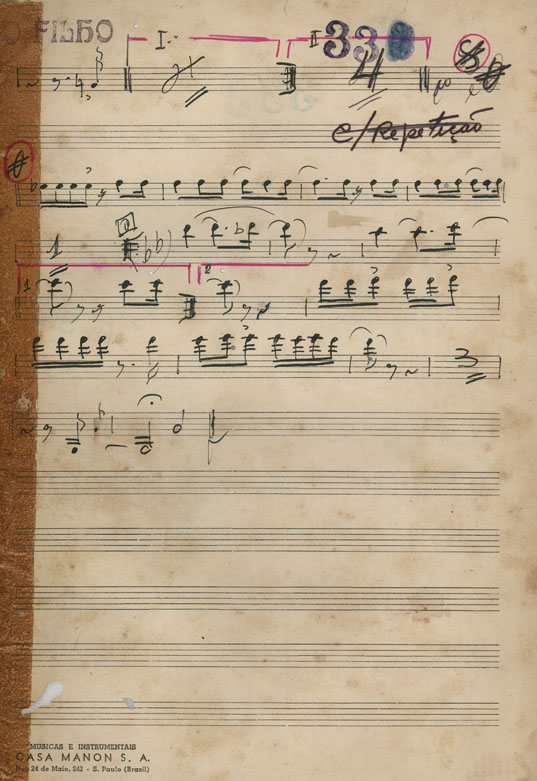 FILHO
I. II 33
4
C/ Repetição
1
1 2
3
MUSICAS E INSTRUMENTAIS
CASA MANON S. A.
Rua 24 de Maio, 242 - S. Paulo (Brasil)